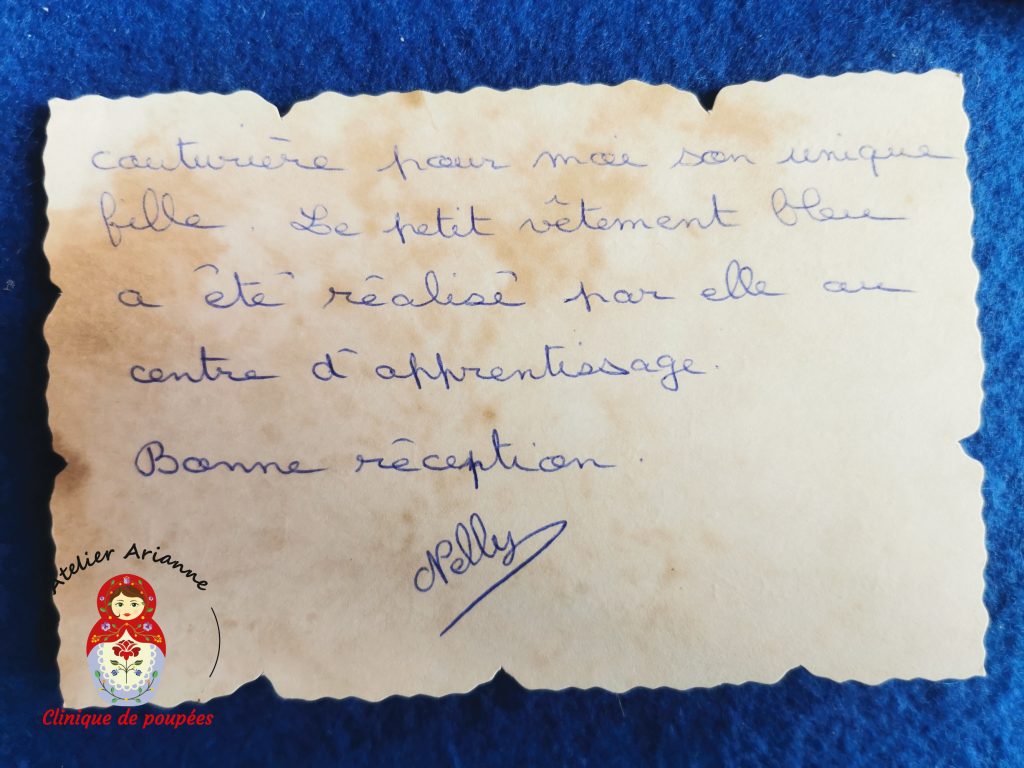 couturière pour moi son unique
fille. Le petit vêtement bleu
a été réalisé par elle au
centre d'apprentissage.
Bonne réception.
Nelly
Atelier Arianne
Clinique de poupées